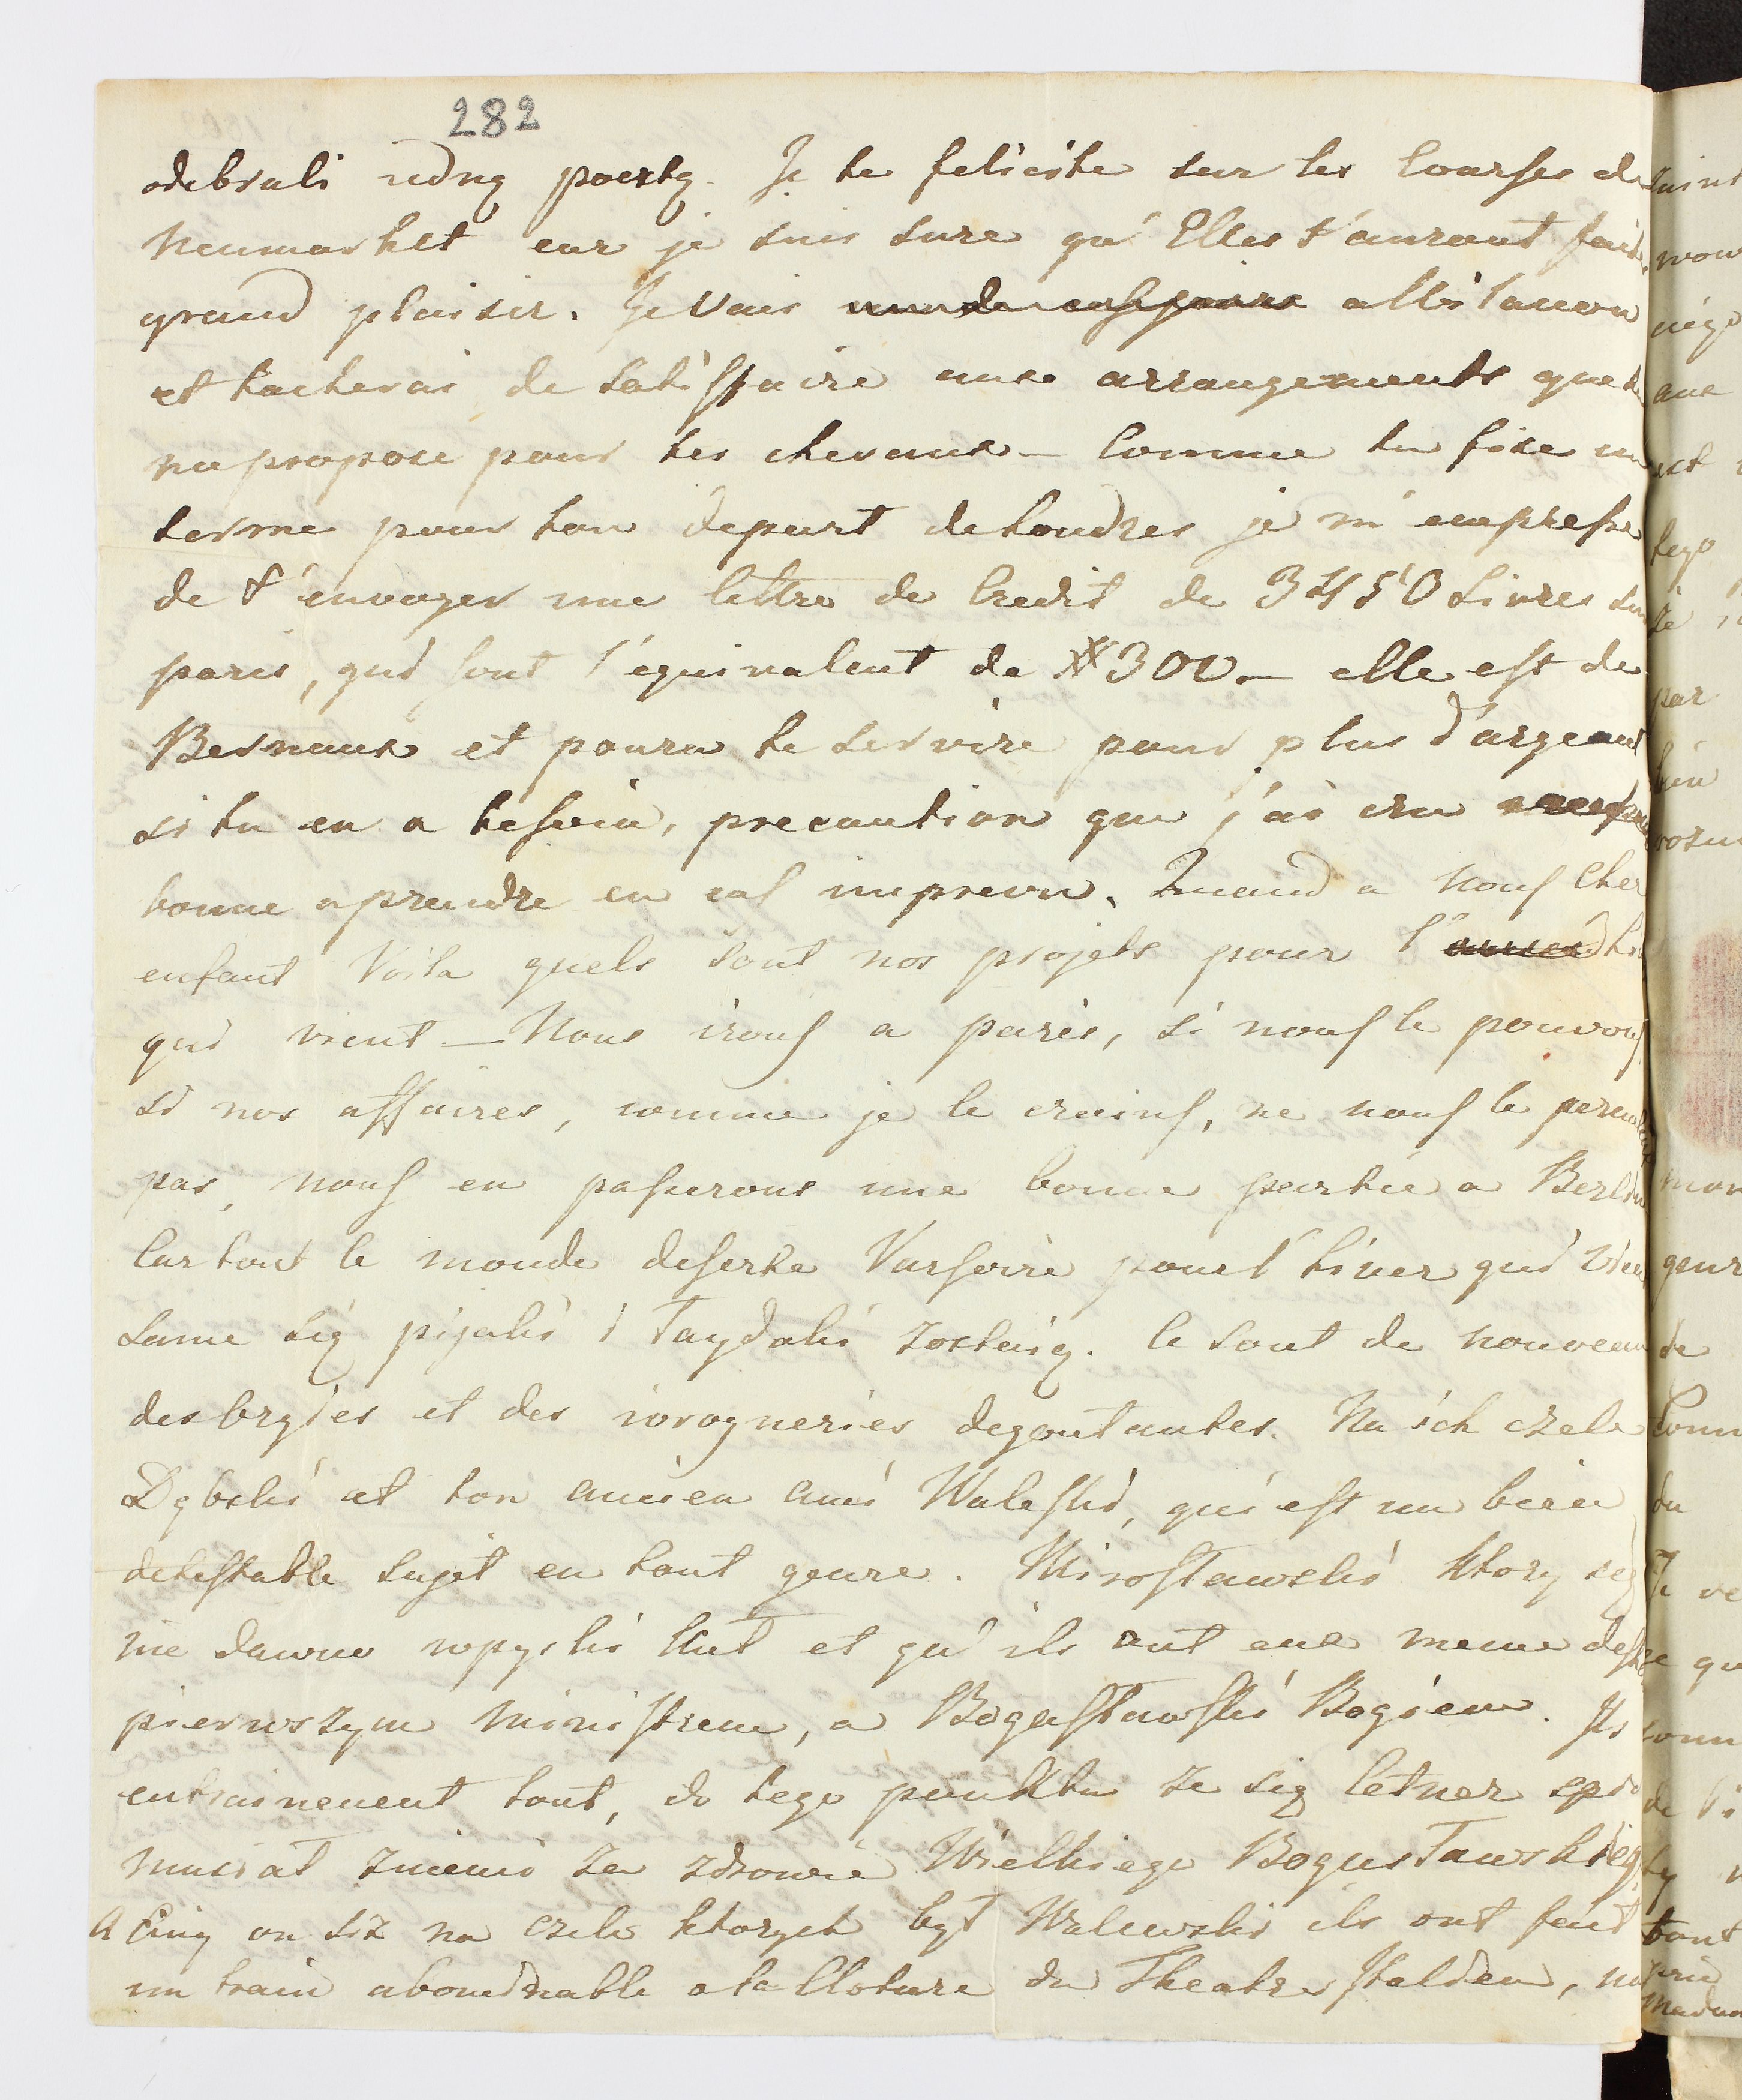 282
odebrali iedną pocztą. Je te felicite sur les Courses de
Neumarket car je suis sure qu'Elles t'auront fait
grand plaisir. Je Vais
et tacherai de satisfaire aux arrangements que tu
ma propose pour tes chevaux — Comme tu fixe un
terme pour ton depart de Londres je m'empresse
de t'envoyer une lettre de Credit de 3450 Livres sur
paris, qui font l'equivalent de # 300. — elle est de
Bernaux et poura te servire pour plus d'argeant
si tu en a besoin, precaution que j'ai cru
bonne a prendre en cas imprevu. Quand a nous Cher
enfant Voila quels sont nos projets pour l'
qui vient — Nous irons a paris, si nous le pouvons
si nos affaires, comme je le crains, ne nous le permettent
pas, nous en passerons une bonne partie a Berlin
Car tout le monde deserte Varsovie pour l'hiver qui vien
same się pijaki i łaydaki zostaią. Ce sont de nouveau
des orgies et des ivrogneries degoutantes. Na ich czele
Dąbski et ton ancien ami Waleski, qui est un bien
detestable sujet en tout genre. Mirosławski ktory się
nie dawno wpyski kut et qu'ils ont eux meme
pierwszym ministrem, a Bogusławski Bogiem. Ils
entrainenent tout, do tego punktu ze się
musiał za zdrowie Wielkiego Bogusławskieg
A Cinq ou six na czele ktorych był Walewski ils ont fait
un train abominable a la Cloture du Theatre Italien,